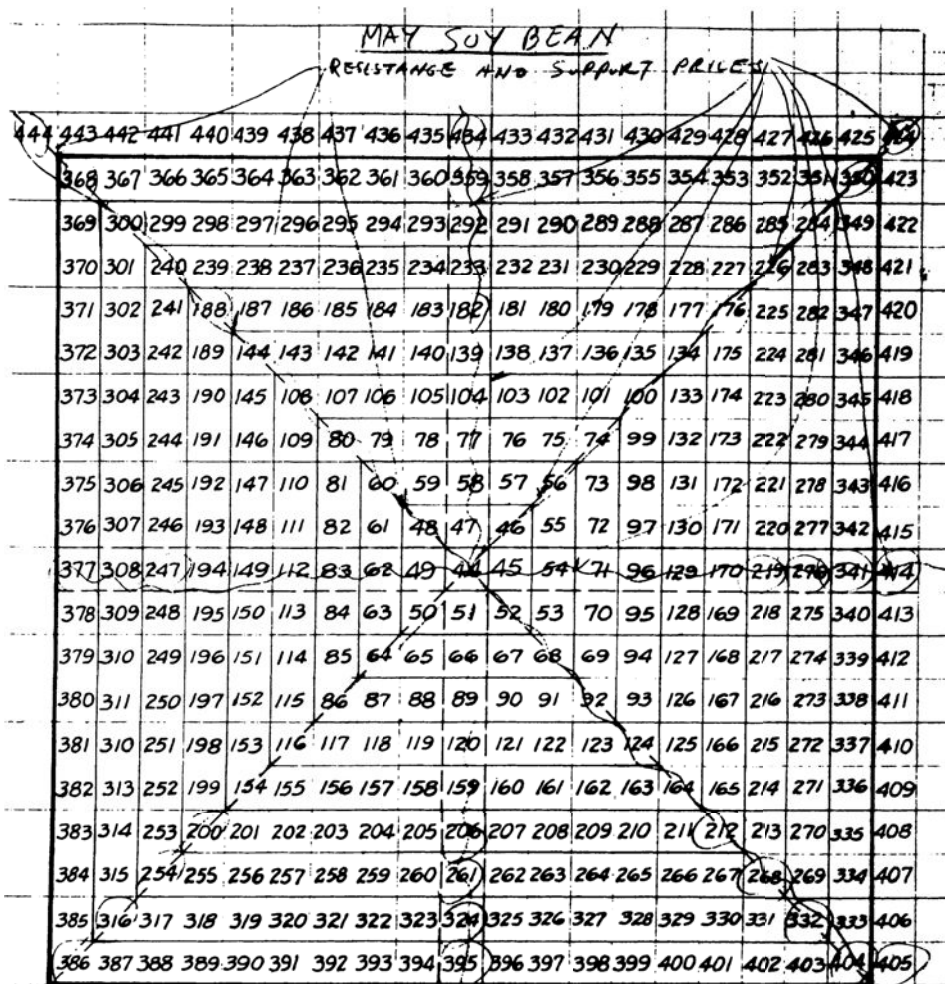 MAY SOY BEAN
RESISTANGE AND SUPPORT PRICES
444 443 442 441 440 439 438 437 436 435 434 433 432 431 430 429 428 427 426 425 424
368 367 366 365 364 363 362 361 360 359 358 357 356 355 354 353 352 351 350 423
369 300 299 298 297 296 295 294 293 292 291 290 289 288 287 286 285 284 349 422
370 301 240 239 238 237 236 235 234 233 232 231 230 229 228 227 226 283 348 421
371 302 241 188 187 186 185 184 183 182 181 180 179 178 177 176 225 282 347 420
372 303 242 189 144 143 142 141 140 139 138 137 136 135 134 175 224 281 346 419
373 304 243 190 145 108 107 106 105 104 103 102 101 100 133 174 223 280 345 418
374 305 244 191 146 109 80 79 78 77 76 75 74 99 132 173 222 279 344 417
375 306 245 192 147 110 81 60 59 58 57 56 73 98 131 172 221 278 343 416
376 307 246 193 148 111 82 61 48 47 46 55 72 97 130 171 220 277 342 415
377 308 247 194 149 112 83 62 49 44 45 54 71 96 129 170 219 276 341 414
378 309 248 195 150 113 84 63 50 51 52 53 70 95 128 169 218 275 340 413
379 310 249 196 151 114 85 64 65 66 67 68 69 94 127 168 217 274 339 412
380 311 250 197 152 115 86 87 88 89 90 91 92 93 126 167 216 273 338 411
381 310 251 198 153 116 117 118 119 120 121 122 123 124 125 166 215 272 337 410
382 313 252 199 154 155 156 157 158 159 160 161 162 163 164 165 214 271 336 409
383 314 253 200 201 202 203 204 205 206 207 208 209 210 211 212 213 270 335 408
384 315 254 255 256 257 258 259 260 261 262 263 264 265 266 267 268 269 334 407
385 316 317 318 319 320 321 322 323 324 325 326 327 328 329 330 331 332 333 406
386 387 388 389 390 391 392 393 394 395 396 397 398 399 400 401 402 403 404 405